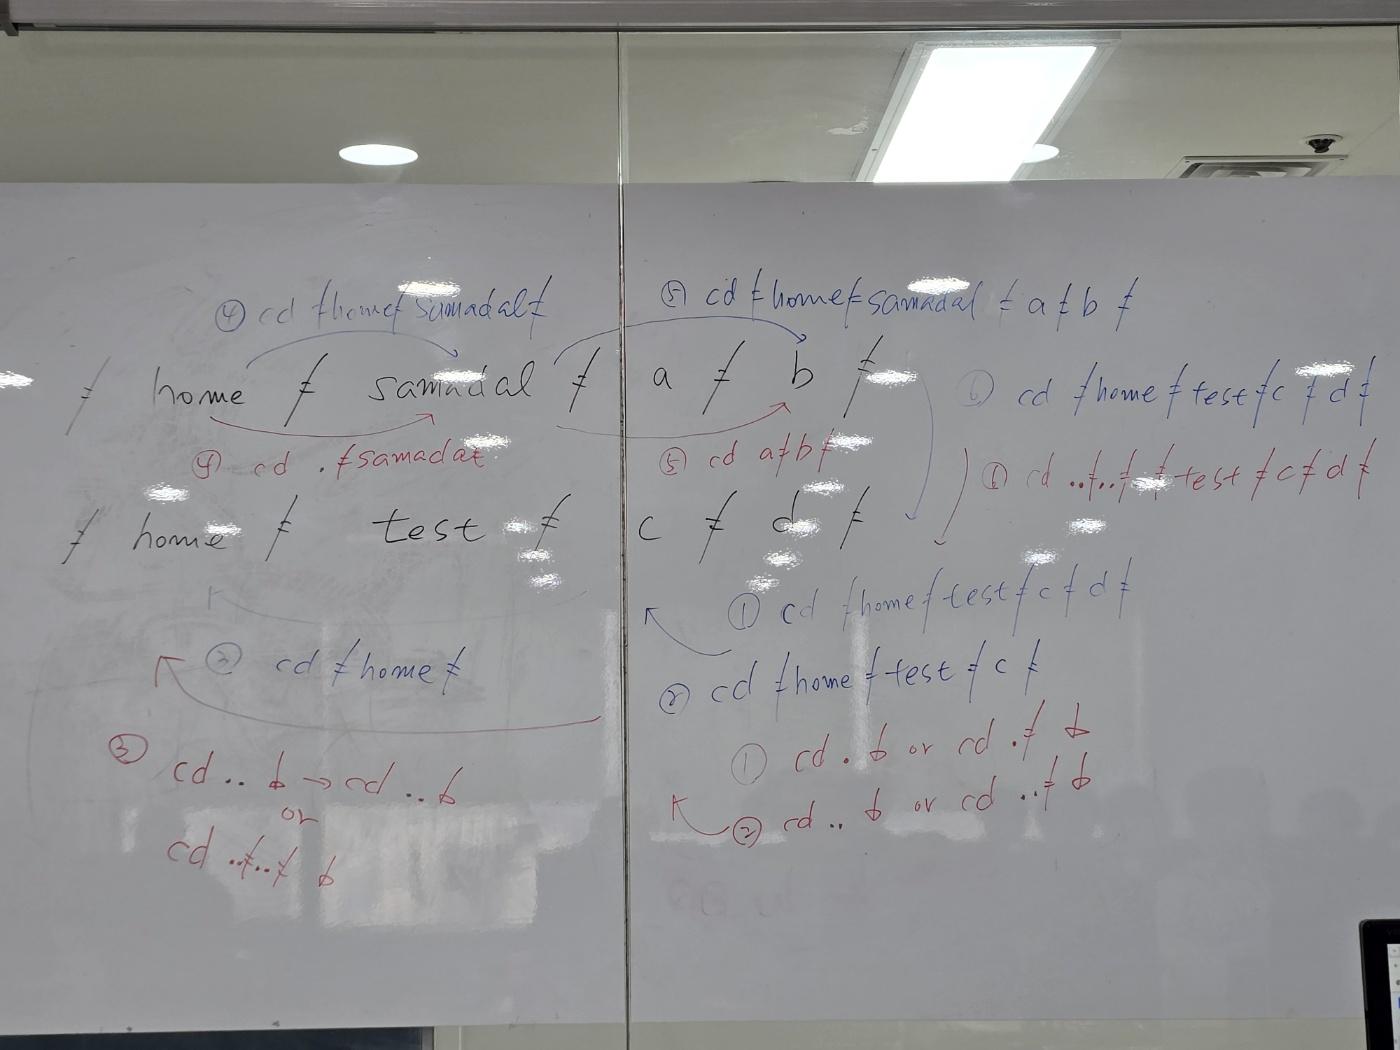 ④ cd /home/samadal/
⑤ cd /home/samadal/a/b/
/ home / samadal / a / b /
⑥ cd /home/test/c/d/
④ cd ./samadal
⑤ cd a/b/
⑥ cd ../../test/c/d/
/ home / test / c / d /
① cd /home/test/c/d/
③ cd /home/
② cd /home/test/c/
① cd . b or cd ./ b
③ cd .. b → cd .. b
or
② cd .. b or cd ../ b
cd ../../ b